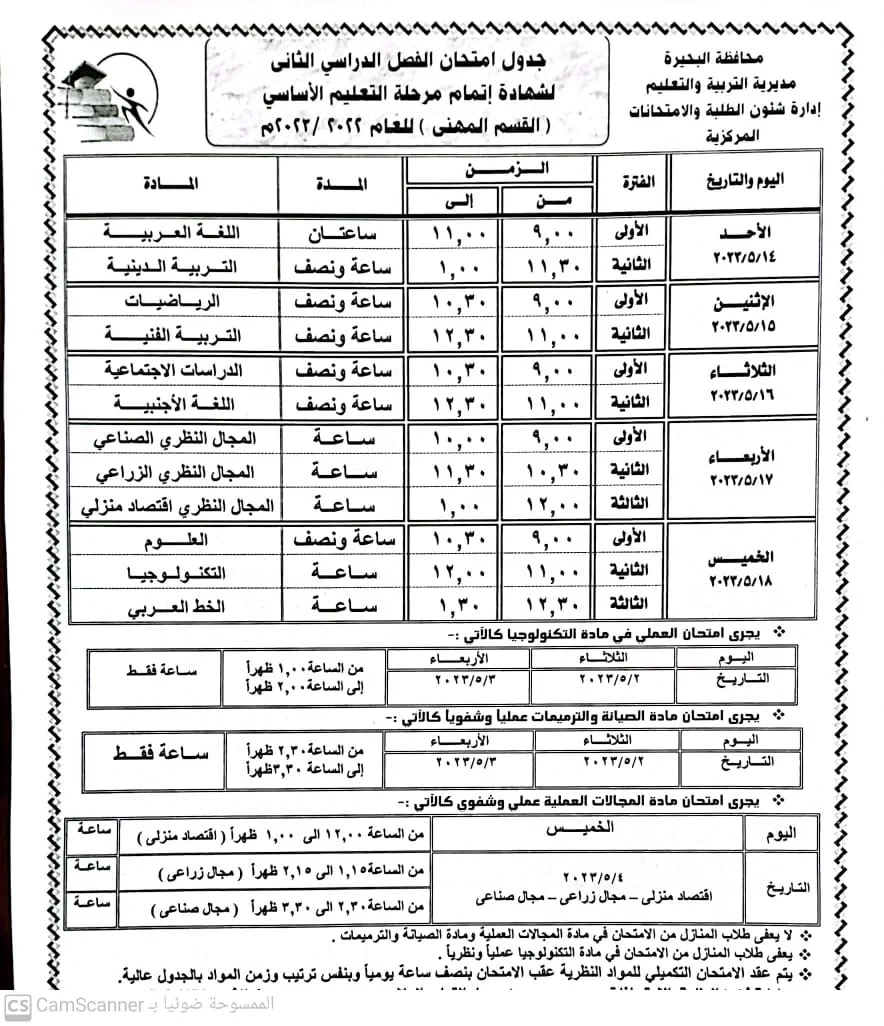 محافظة البحيرة
مديرية التربية والتعليم
إدارة شئون الطلبة والامتحانات
المركزية
جدول امتحان الفصل الدراسي الثانى
لشهادة إتمام مرحلة التعليم الأساسي
( القسم المهنى ) للعام ٢٠٢٢ /٢٠٢٣م
اليوم والتاريخ الفترة الزمن المدة المادة
من إلى
الأحد ٢٠٢٣/٥/١٤
الأولى ٩,٠٠ ١١,٠٠ ساعتان اللغة العربية
الثانية ١١,٣٠ ١,٠٠ ساعة ونصف التربية الدينية
الإثنين ٢٠٢٣/٥/١٥
الأولى ٩,٠٠ ١٠,٣٠ ساعة ونصف الرياضيات
الثانية ١١,٠٠ ١٢,٣٠ ساعة ونصف التربية الفنية
الثلاثاء ٢٠٢٣/٥/١٦
الأولى ٩,٠٠ ١٠,٣٠ ساعة ونصف الدراسات الاجتماعية
الثانية ١١,٠٠ ١٢,٣٠ ساعة ونصف اللغة الأجنبية
الأربعاء ٢٠٢٣/٥/١٧
الأولى ٩,٠٠ ١٠,٠٠ ساعة المجال النظري الصناعي
الثانية ١٠,٣٠ ١١,٣٠ ساعة المجال النظري الزراعي
الثالثة ١٢,٠٠ ١,٠٠ ساعة المجال النظري اقتصاد منزلي
الخميس ٢٠٢٣/٥/١٨
الأولى ٩,٠٠ ١٠,٣٠ ساعة ونصف العلوم
الثانية ١١,٠٠ ١٢,٠٠ ساعة التكنولوجيا
الثالثة ١٢,٣٠ ١,٣٠ ساعة الخط العربي
❖ يجرى امتحان العملي في مادة التكنولوجيا كالآتي :-
اليوم الثلاثاء الأربعاء من الساعة ١,٠٠ ظهراً ساعة فقط
التاريخ ٢٠٢٣/٥/٢ ٢٠٢٣/٥/٣ إلى الساعة ٢,٠٠ ظهراً
❖ يجرى امتحان مادة الصيانة والترميمات عملياً وشفوياً كالآتي :-
اليوم الثلاثاء الأربعاء من الساعة ٢,٣٠ ظهراً ساعة فقط
التاريخ ٢٠٢٣/٥/٢ ٢٠٢٣/٥/٣ إلى الساعة ٣,٣٠ظهراً
❖ يجرى امتحان مادة المجالات العملية عملي وشفوي كالآتي :-
اليوم الخميس من الساعة ١٢,٠٠ الى ١,٠٠ ظهراً ( اقتصاد منزلى ) ساعة
التاريخ ٢٠٢٣/٥/٤ من الساعة١,١٥ الى ٢,١٥ ظهراً ( مجال زراعى ) ساعة
اقتصاد منزلى – مجال زراعى – مجال صناعى من الساعة ٢,٣٠ الى ٣,٣٠ ظهراً ( مجال صناعى ) ساعة
❖ لا يعفى طلاب المنازل من الامتحان في مادة المجالات العملية ومادة الصيانة والترميمات .
❖ يعفى طلاب المنازل من الامتحان في مادة التكنولوجيا عملياً ونظرياً .
❖ يتم عقد الامتحان التكميلي للمواد النظرية عقب الامتحان بنصف ساعة يومياً وبنفس ترتيب وزمن المواد بالجدول عالية.
CS CamScanner الممسوحة ضوئيا بـ